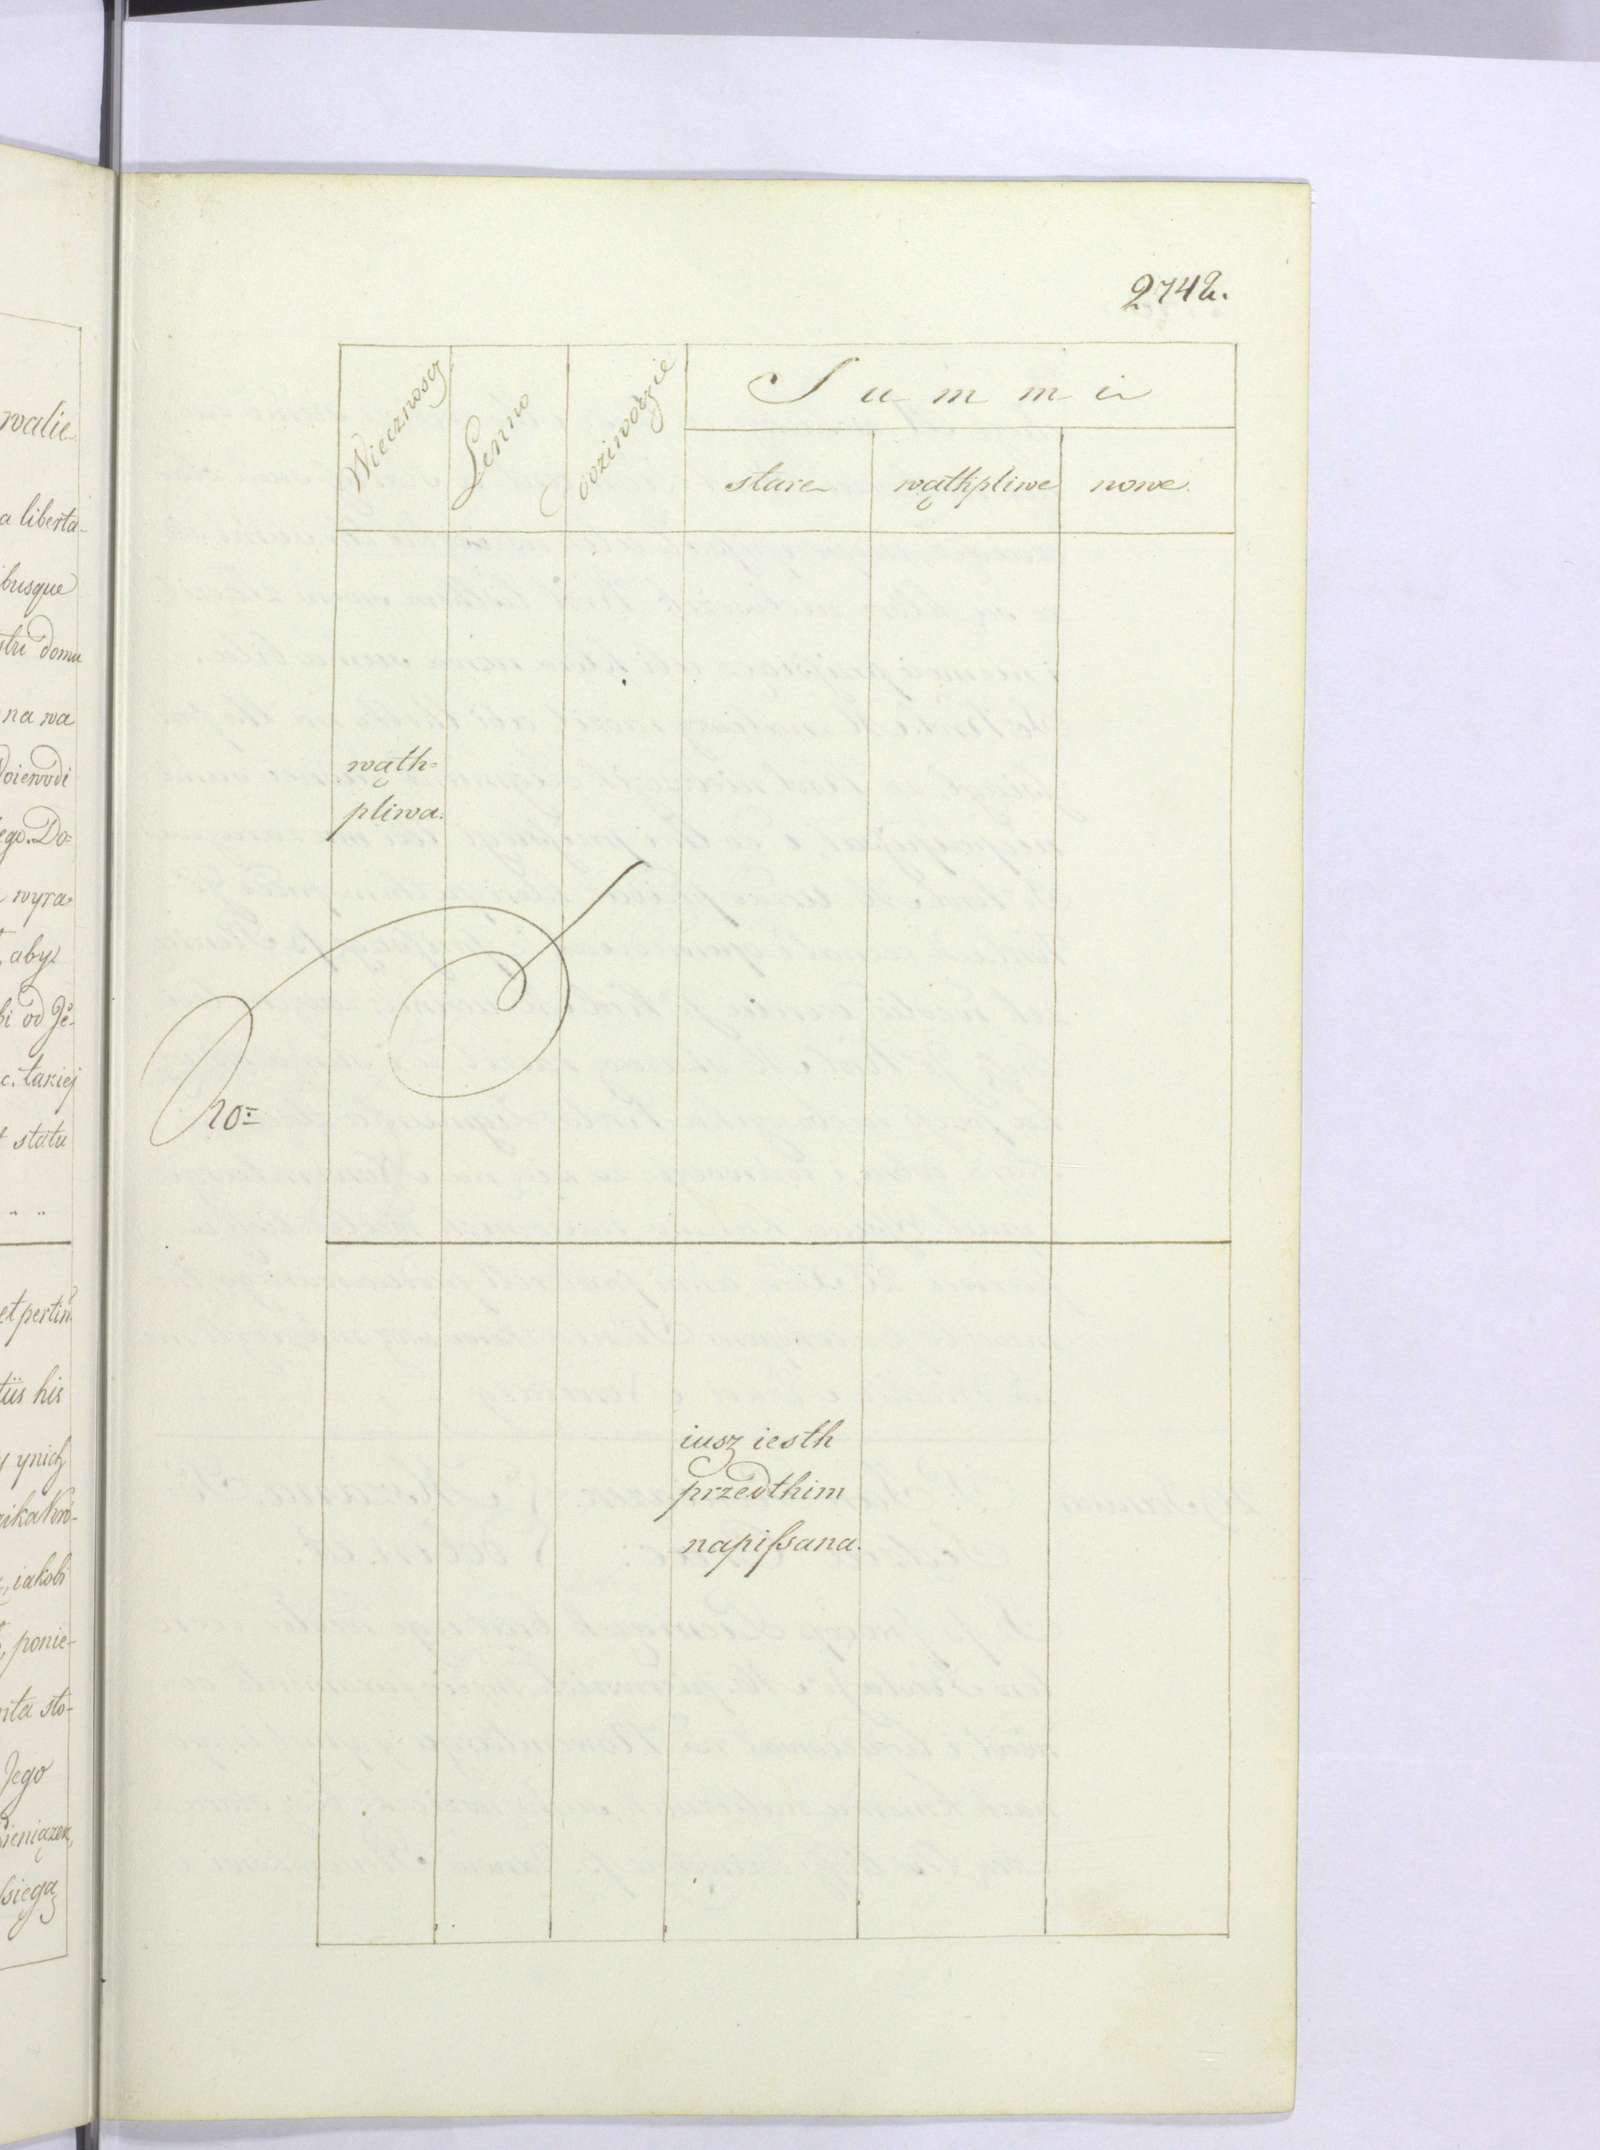 2742.
Wiecznoscz Lenno Doziwodzie Summi
stare wąthpliwe nowe
wąth=
pliwa.
iusz iesth
przedthim
napiſsana.
walie
a liberta-
busque
stri domu
na wa
oiewodi
ego. Do=
wyra=
aby
bi od Je-
c. takiej
statu
et pertin
tiis his
y ynich
iakobi
ponie-
ita sto-
Jego
ieniązek,